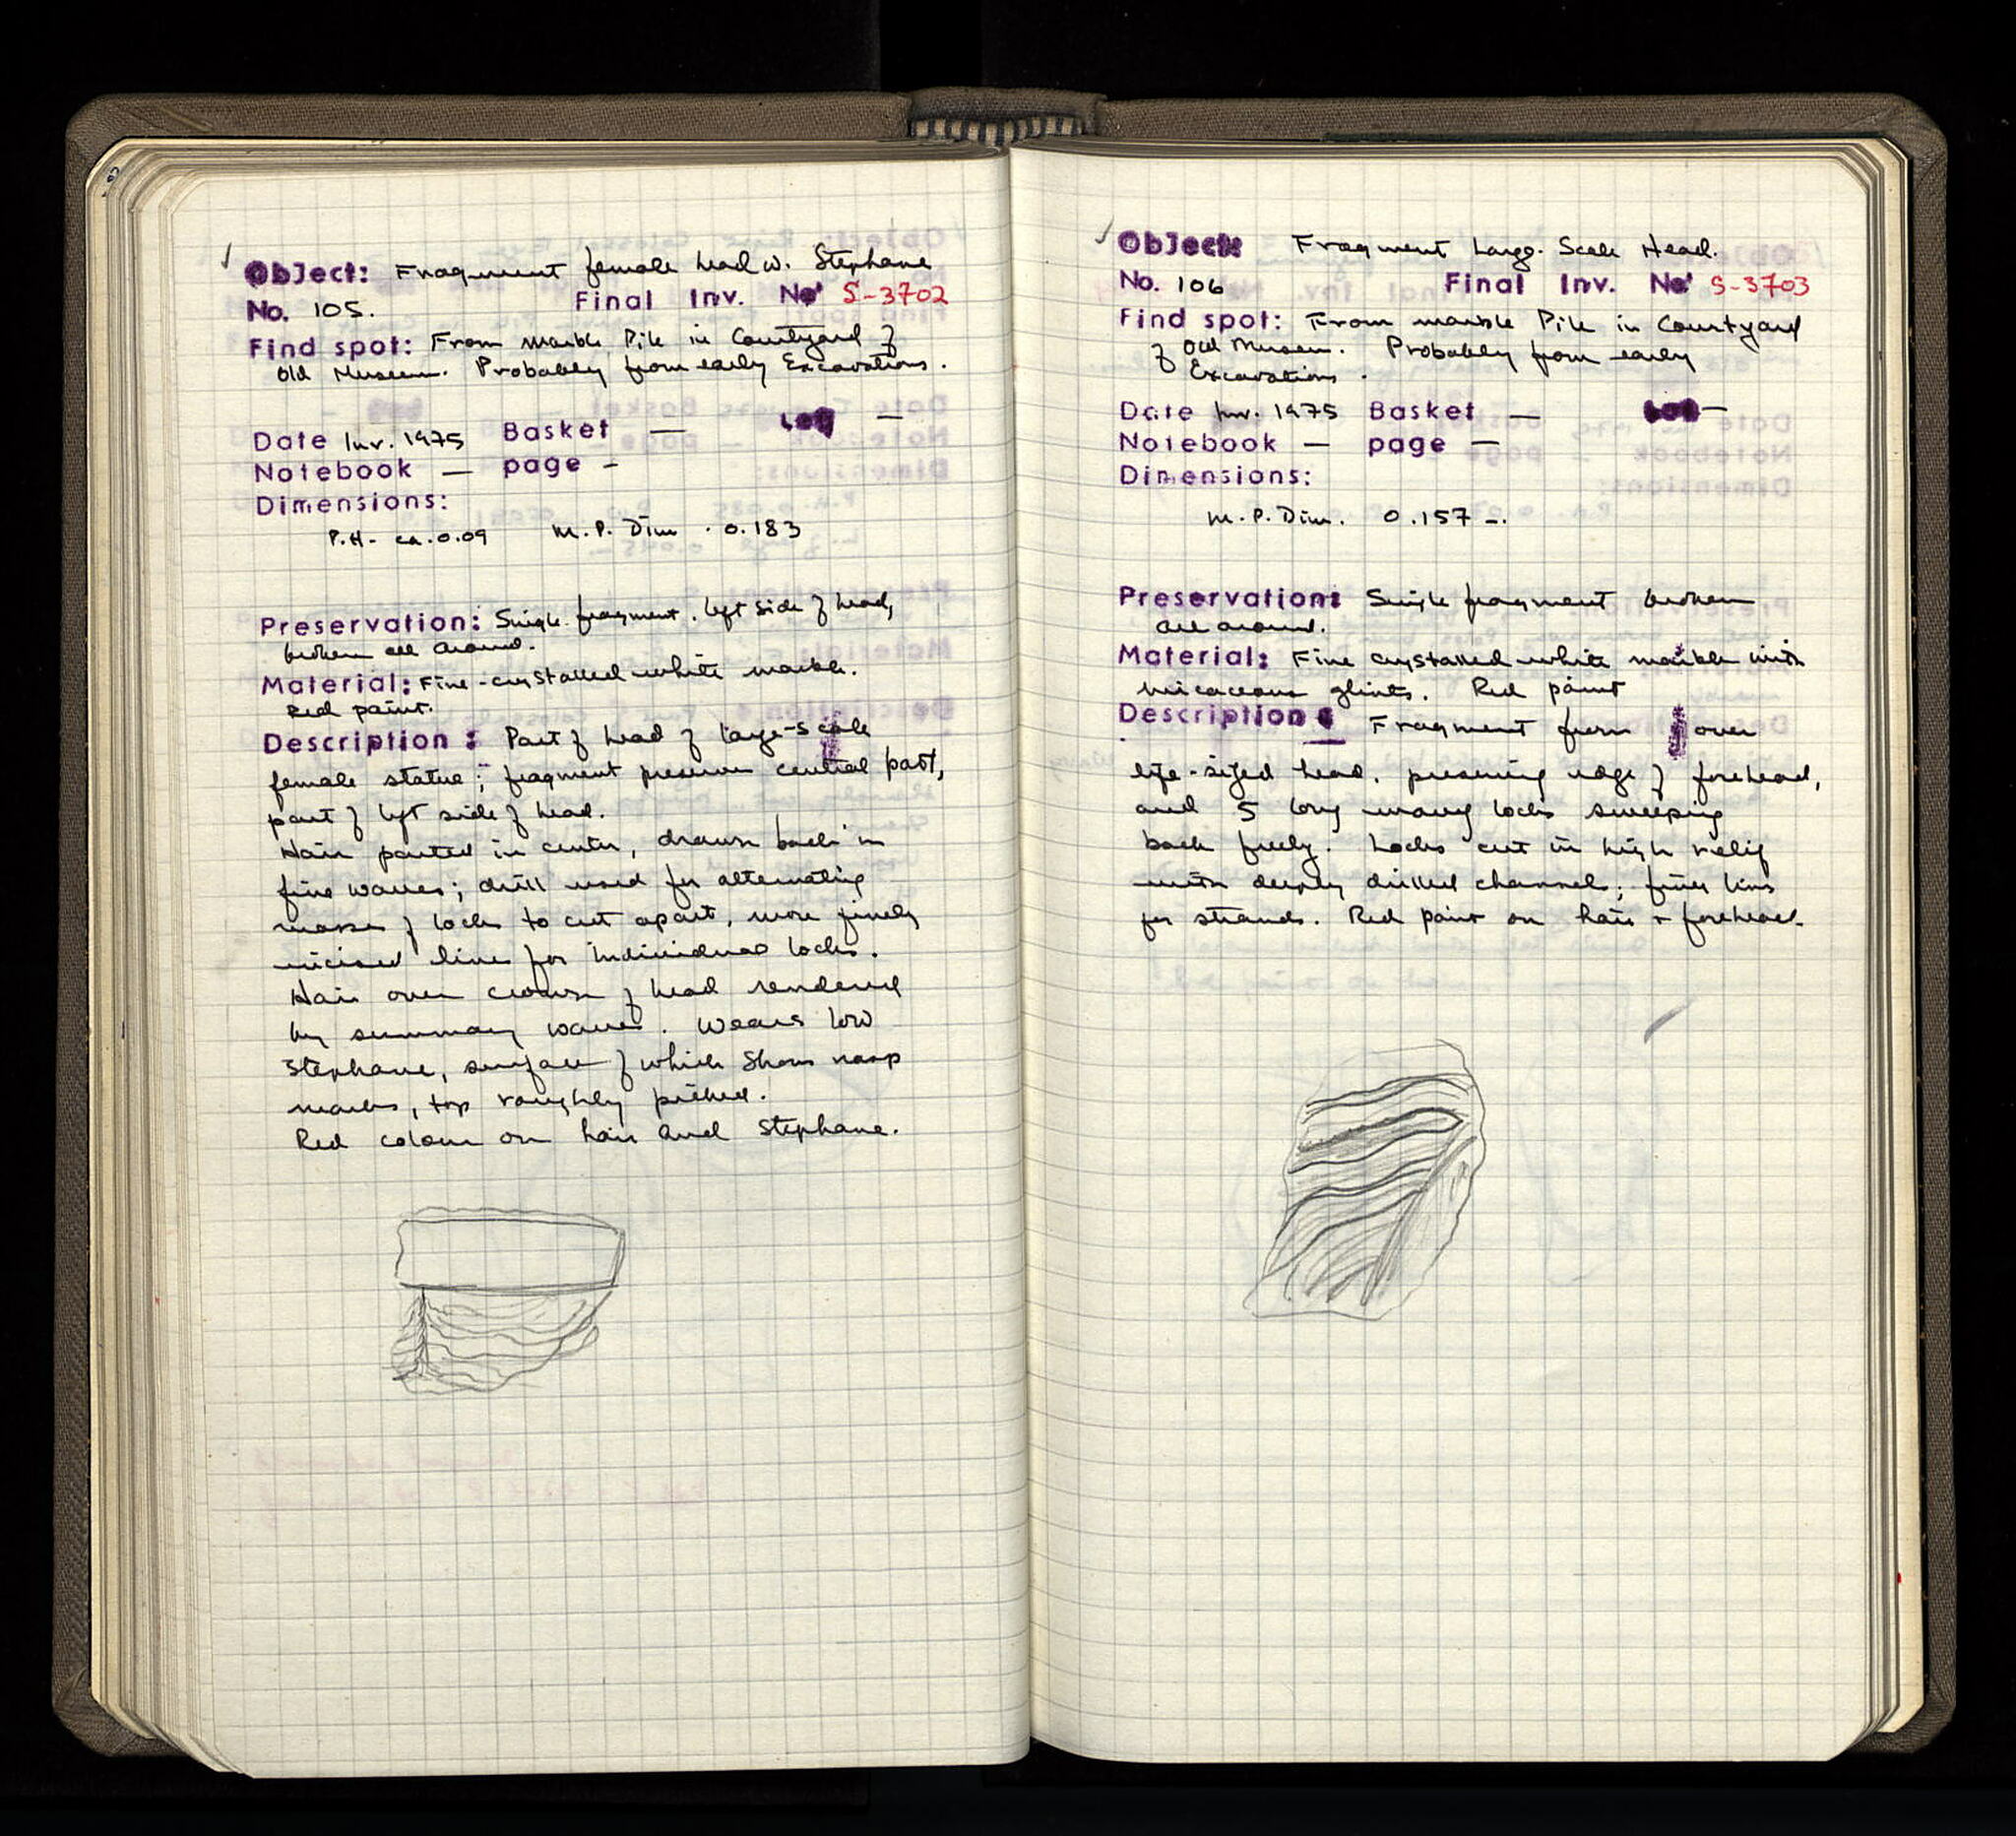 Object: Fragment female head w. Stephane
No. 105. Final Inv. No. S-3702
Find spot: From marble Pile in Courtyard of
Old Museum. Probably from early Excavations.
Date Inv. 1975 Basket — Lot —
Notebook — page -
Dimensions:
P.H- ca. 0.09 M. P. Dim. 0.183
Preservation: Single fragment. left side of head,
broken all around.
Material: Fine-crystalled white marble.
Red paint.
Description: Part of head of large-scale
female statue; fragment preserves central part,
part of left side of head.
Hair parted in center, drawn back in
fine waves; drill used for alternating
masses of locks to cut apart, more finely
incised lines for individual locks.
Hair over crown of head rendered
by summary waves. Wears low
Stephane, surface of which shows rasp
marks, top roughly picked.
Red colour on hair and Stephane.
Object: Fragment Large Scale Head.
No. 106 Final Inv. No. S-3703
Find spot: From marble Pile in Courtyard
of Old Museum. Probably from early
Excavations.
Date Inv. 1975 Basket — Lot —
Notebook — page —
Dimensions:
M.P. Dim. 0.157 -.
Preservation: Single fragment broken
all around.
Material: Fine crystalled white marble with
micaceous glints. Red paint
Description: Fragment from over
life-sized head, preserving edge of forehead,
and 5 long wavy locks sweeping
back freely. Locks cut in high relief
with deeply drilled channels; finer lines
for strands. Red paint on hair + forehead.